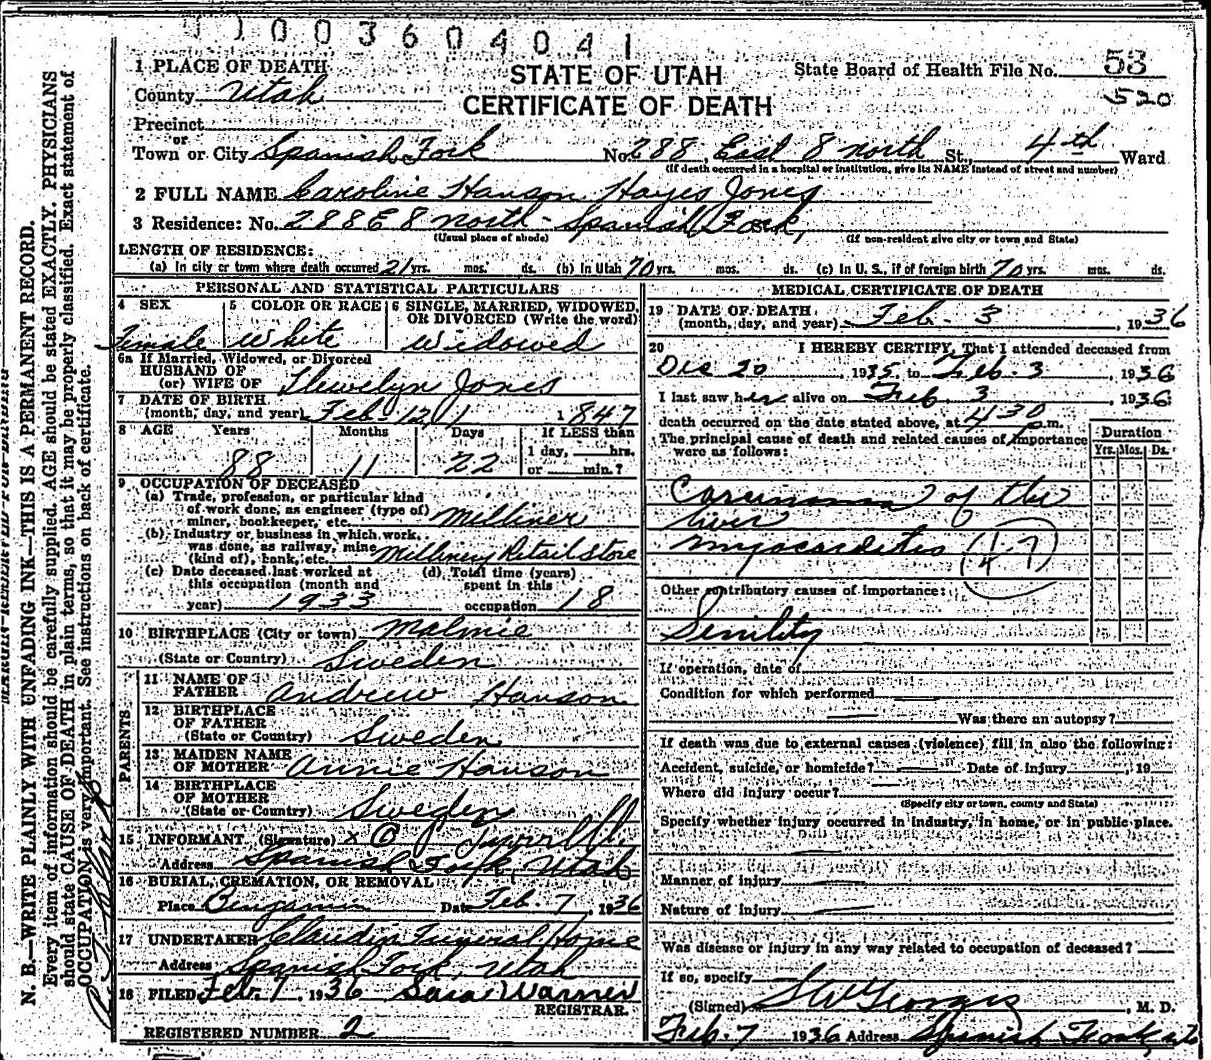 1003604041
1 PLACE OF DEATH
STATE OF UTAH
State Board of Health File No. 53
County Utah
CERTIFICATE OF DEATH
520
Precinct
or
Town or City Spanish Fork No. 288, East 8 north St., 4th Ward
(If death occurred in a hospital or institution, give its NAME instead of street and number)
2 FULL NAME Caroline Hanson Hayes Jones
3 Residence: No. 288 E 8 north - Spanish Fork,
(Usual place of abode) (If non-resident give city or town and State)
LENGTH OF RESIDENCE:
(a) In city or town where death occurred 21 yrs. mos. ds. (b) In Utah 70 yrs. mos. ds. (c) In U. S., if of foreign birth 70 yrs. mos. ds.
PERSONAL AND STATISTICAL PARTICULARS
4 SEX 5 COLOR OR RACE 6 SINGLE, MARRIED, WIDOWED,
OR DIVORCED (Write the word)
Female White Widowed
6a If Married, Widowed, or Divorced
HUSBAND OF
(or) WIFE OF Llewelyn Jones
7 DATE OF BIRTH
(month, day, and year) Feb 12 1 1847
8 AGE Years Months Days If LESS than
1 day, hrs.
88 11 22 or min.?
9 OCCUPATION OF DECEASED
(a) Trade, profession, or particular kind
of work done, as engineer (type of)
miner, bookkeeper, etc. Milliner
(b) Industry or business in which work
was done, as railway, mine
(kind of), bank, etc. Millinery Retail Store
(c) Date deceased last worked at (d) Total time (years)
this occupation (month and spent in this
year) 1933 occupation 18
10 BIRTHPLACE (City or town) Malmie
(State or Country) Sweden
PARENTS
11 NAME OF
FATHER Andrew Hanson
12 BIRTHPLACE
OF FATHER
(State or Country) Sweden
13 MAIDEN NAME
OF MOTHER Annie Hanson
14 BIRTHPLACE
OF MOTHER
(State or Country) Sweden
15 INFORMANT (Signature) x
Address Spanish Fork, Utah
16 BURIAL, CREMATION, OR REMOVAL
Place Benjamin Date Feb. 7, 1936
17 UNDERTAKER Claudin Funeral Home
Address Spanish Fork, Utah
18 FILED Feb. 7, 1936 Sara Warner
REGISTRAR.
REGISTERED NUMBER 2
MEDICAL CERTIFICATE OF DEATH
19 DATE OF DEATH
(month, day, and year) Feb. 3, 1936
20 I HEREBY CERTIFY, That I attended deceased from
Dec 20 1935 to Feb. 3, 1936
I last saw her alive on Feb. 3, 1936
death occurred on the date stated above, at 4 30 p.m.
The principal cause of death and related causes of importance
were as follows:
Duration
Yrs. Mos. Ds.
Carcinoma of the
liver
Myocarditis
Other contributory causes of importance:
Senility
If operation, date of
Condition for which performed
Was there an autopsy?
If death was due to external causes (violence) fill in also the following:
Accident, suicide, or homicide? Date of injury , 19
Where did injury occur?
(Specify city or town, county and State)
Specify whether injury occurred in industry, in home, or in public place.
Manner of injury
Nature of injury
Was disease or injury in any way related to occupation of deceased?
If so, specify
(Signed) , M. D.
Feb. 7 1936 Address Spanish Fork Ut
N. B.—WRITE PLAINLY WITH UNFADING INK—THIS IS A PERMANENT RECORD.
Every item of information should be carefully supplied. AGE should be stated EXACTLY. PHYSICIANS
should state CAUSE OF DEATH in plain terms, so that it may be properly classified. Exact statement of
OCCUPATION is very important. See instructions on back of certificate.